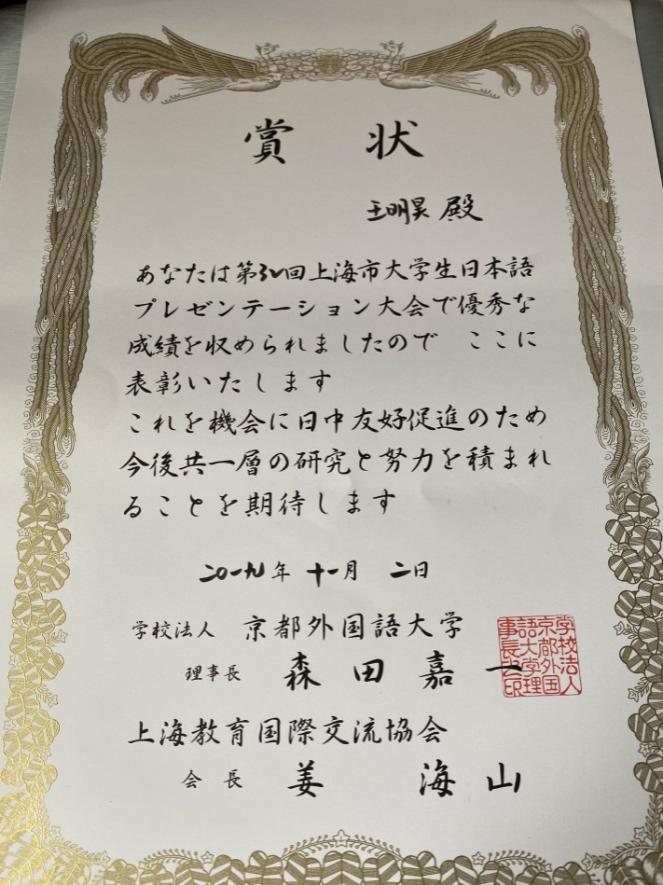 賞 状
王明昊 殿
あなたは第30回上海市大学生日本語
プレゼンテーション大会で優秀な
成績を収められましたので ここに
表彰いたします
これを機会に日中友好促進のため
今後共一層の研究と努力を積まれ
ることを期待します
二〇一九年 十一月 二日
学校法人 京都外国語大学
理事長 森田嘉一
学校法人京都外国語大学理事長之印
上海教育国際交流協会
会長 姜海山